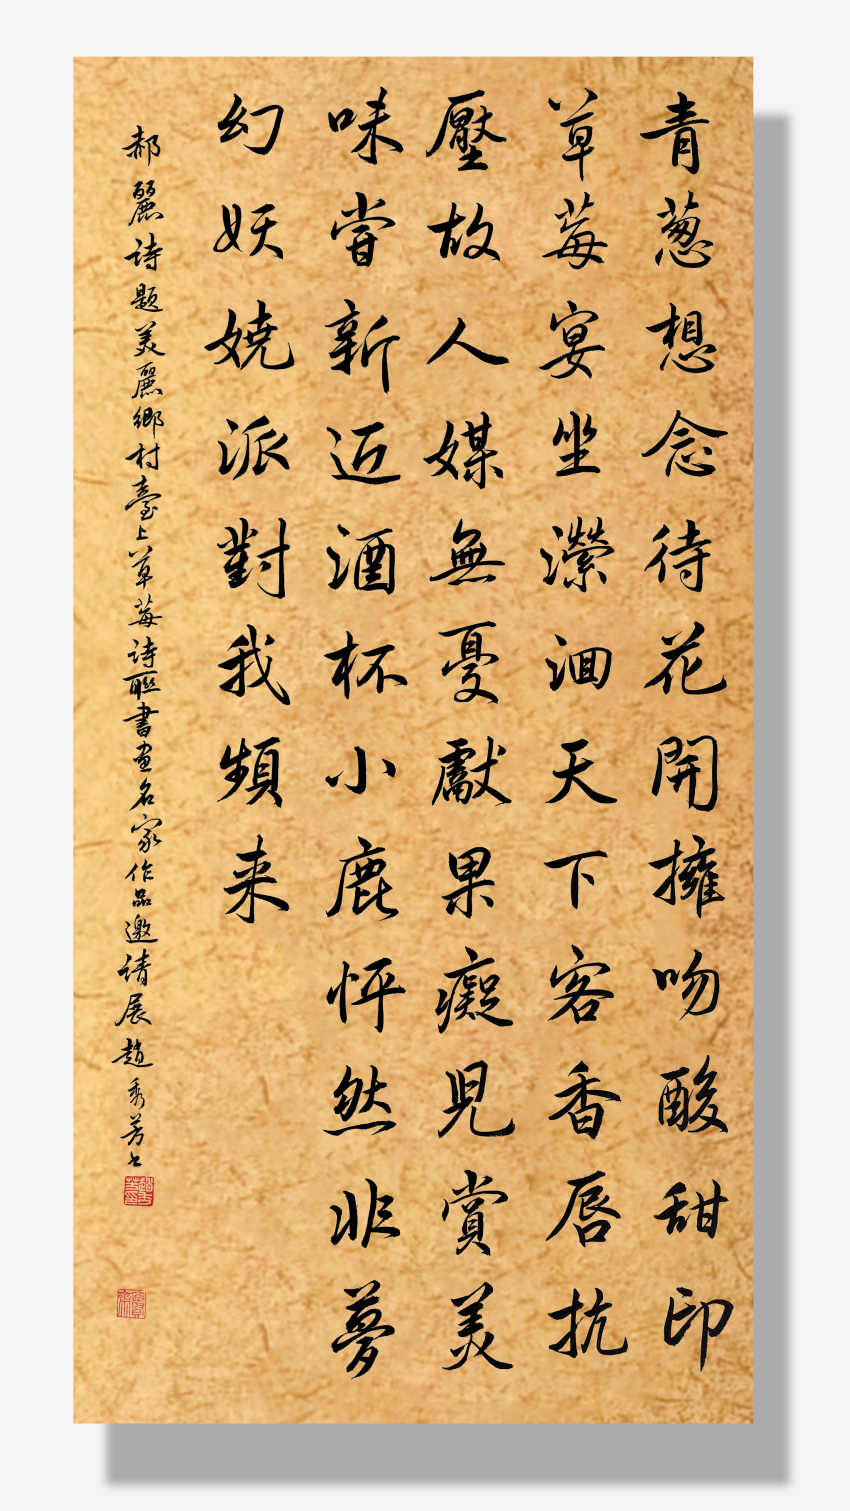 青葱想念待花開擁吻酸甜印
草莓宴坐濚洄天下客香唇抗
壓故人媒無憂獻果癡兒賞美
味嘗新近酒杯小鹿怦然非夢
幻妖嬈派對我頻来
郝麗詩題美麗鄉村臺上草莓詩聯書画名家作品邀請展趙秀芳书